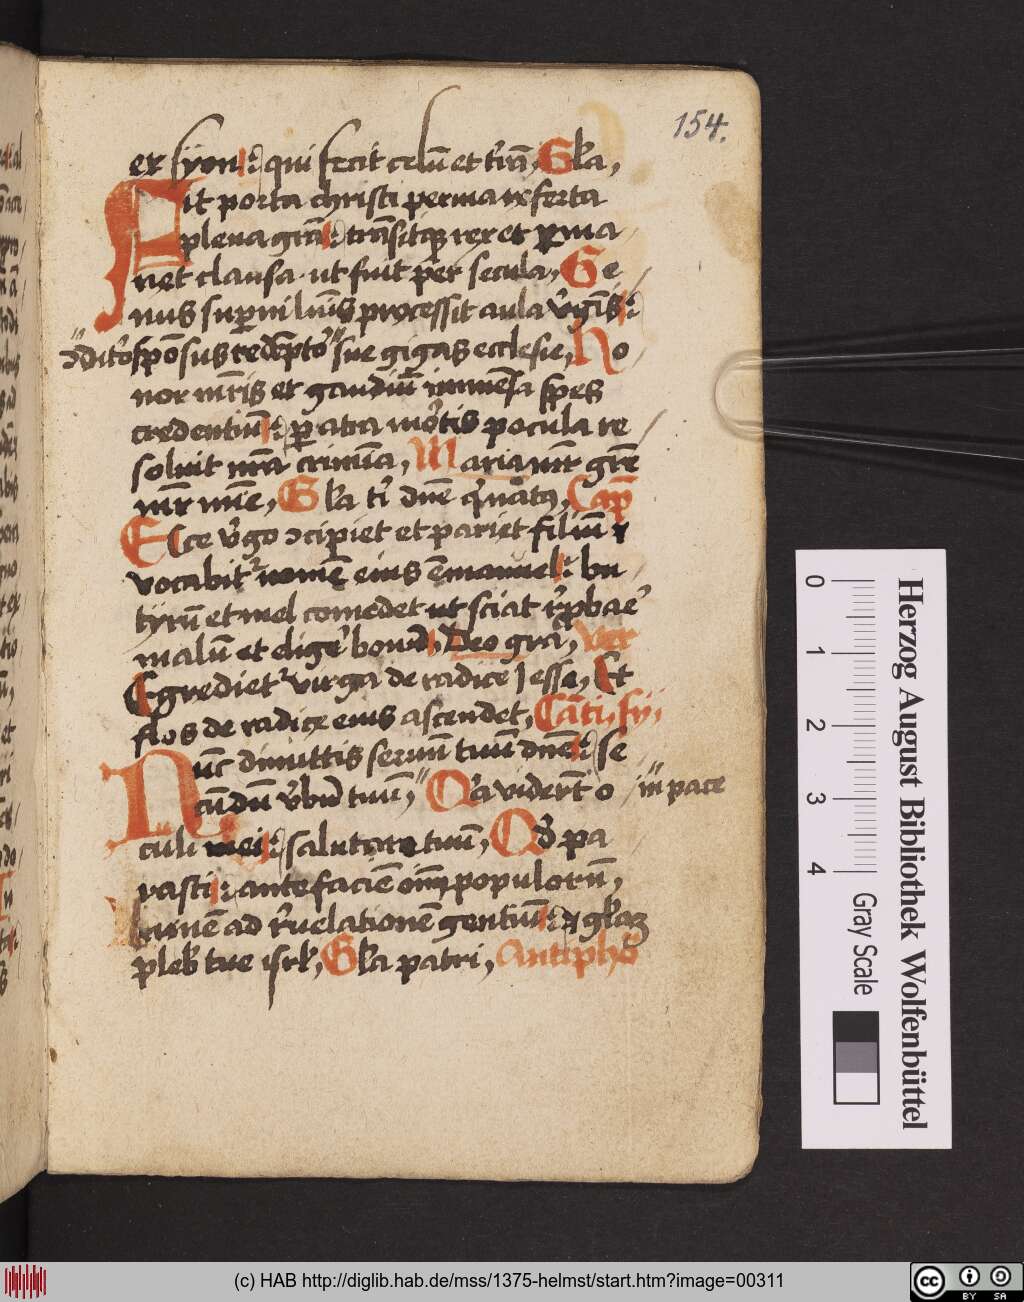 154.
ex syon : qui fecit celū et t'rā, Gl'a,
Fit porta christi perma ix ferta
plena grā : trāsitq; rex et p̱ma
net clausa ut fuit per secula, Ge
nus sup̱ni lūis processit aula v'gīs :
ↄdit'o sponsus redēpto' sue gigas ecclesie, Ho
nor mr̄is et gaudiū inmēsa spes
credentiū : p̱ atra mortis pocula re
soluit nr̄a crimīa, Maria mr̄ grē
mr̄ mīe, Gl'a t' dnē q' nat9, Capl̄
Ecce v'go ↄcipiet et pariet filiū ⁊
vocabit' nomē eius emanuel : bu
tyrū et mel comedet ut sciat r'pbae'
malū et elige' bonū, Deo gra, ver
Egrediet' virga de radice Jesse, Et
flos de radice eius ascendet, Cāti, sy,
Nūc dimittis seruū tuū dnē : se
cūdū v'bū tuū, Q'a vider̄t o in pace
culi mei : salutare tuū, Qd' pa
rasti : ante faciē oīm populorū,
Lumē ad r'uelationē gentiū : ⁊ gl'am
pleb' tue isrl', Gl'a patri, Antiphō
Herzog August Bibliothek Wolfenbüttel
0 1 2 3 4
Gray Scale
(c) HAB http://diglib.hab.de/mss/1375-helmst/start.htm?image=00311
cc BY SA